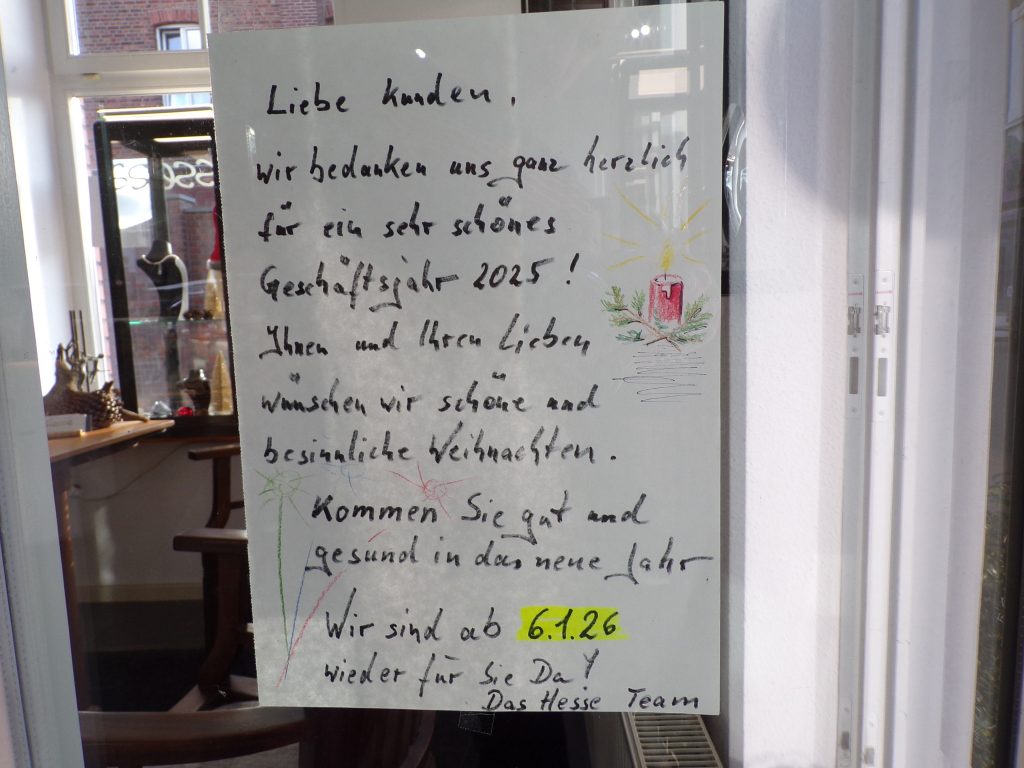 Liebe Kunden,
wir bedanken uns ganz herzlich
für ein sehr schönes
Geschäftsjahr 2025!
Ihnen und Ihren Lieben
wünschen wir schöne und
besinnliche Weihnachten.
Kommen Sie gut und
gesund in das neue Jahr.
Wir sind ab 6.1.26
wieder für Sie Da!
Das Hesse Team